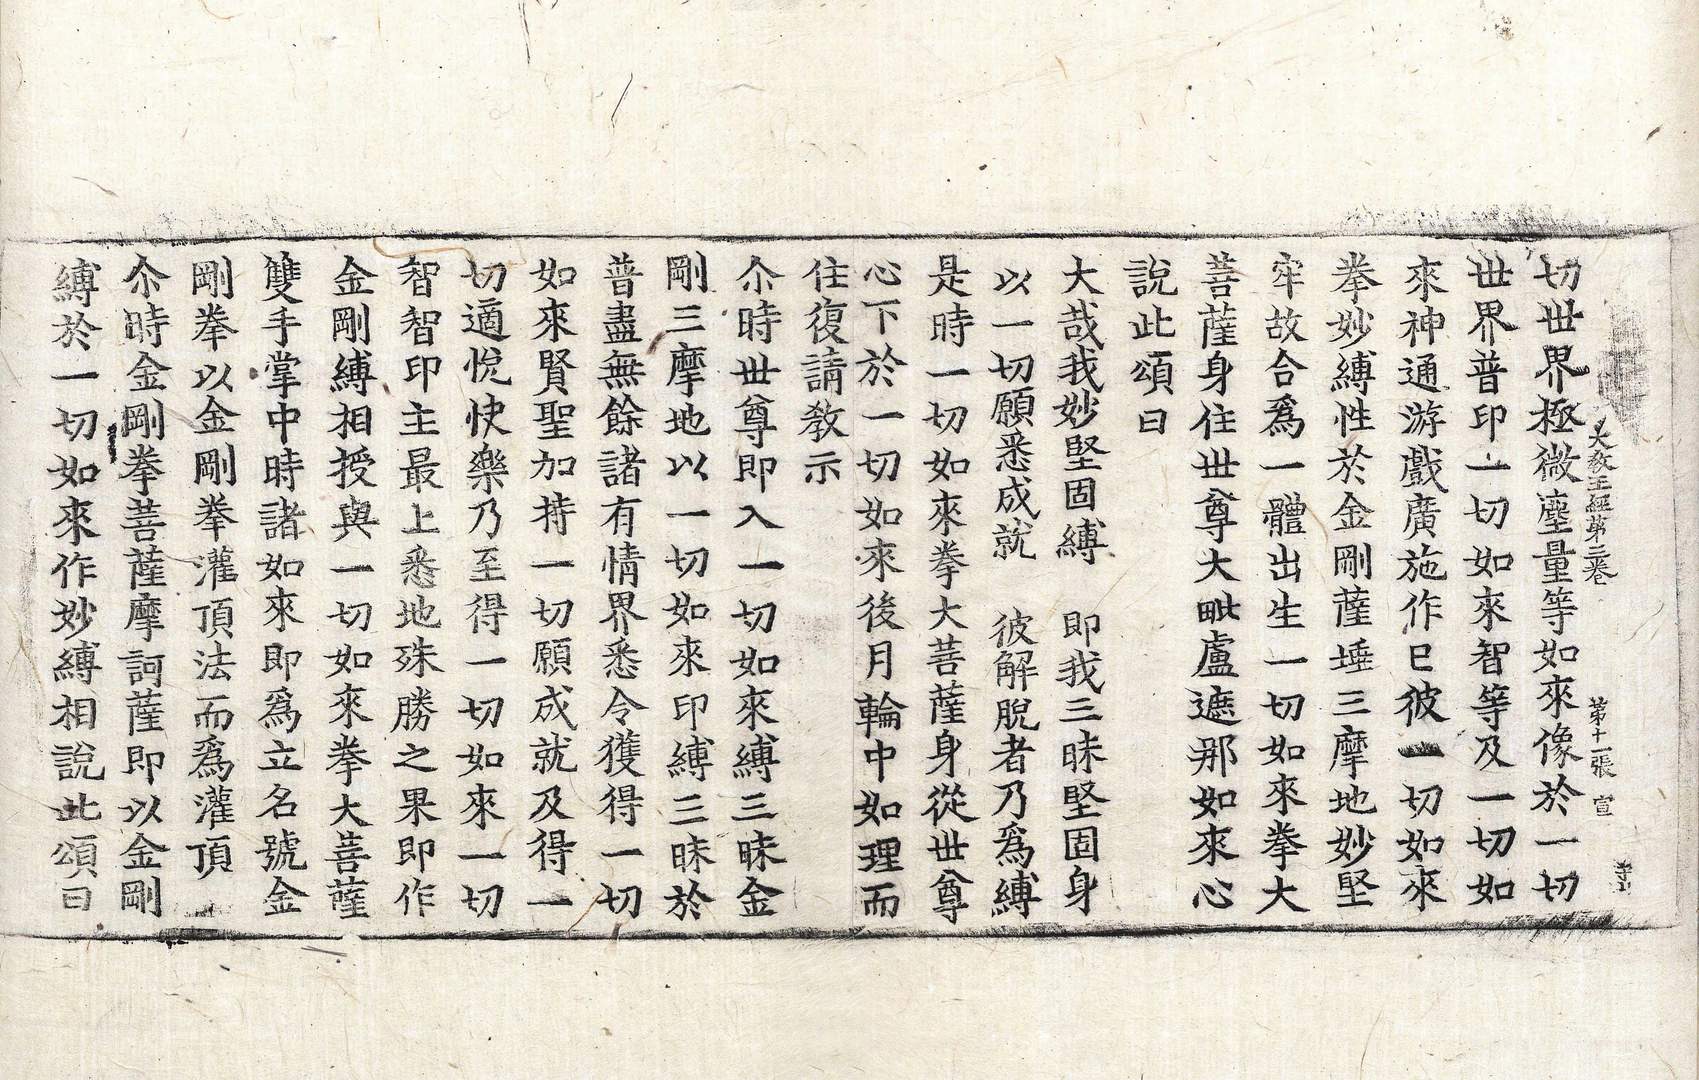 大教王經第二卷　第十一張　宣
切世界極微塵量等如來像於一切
世界普印一切如來智等及一切如
來神通游戲廣施作已彼一切如來
拳妙縛性於金剛薩埵三摩地妙堅
牢故合爲一體出生一切如來拳大
菩薩身住世尊大毗盧遮那如來心
說此頌曰
大哉我妙堅固縛　即我三昧堅固身
以一切願悉成就　彼解脫者乃爲縛
是時一切如來拳大菩薩身從世尊
心下於一切如來後月輪中如理而
住復請教示
尒時世尊即入一切如來縛三昧金
剛三摩地以一切如來印縛三昧於
普盡無餘諸有情界悉令獲得一切
如來賢聖加持一切願成就及得一
切適悅快樂乃至得一切如來一切
智智印主最上悉地殊勝之果即作
金剛縛相授與一切如來拳大菩薩
雙手掌中時諸如來即爲立名號金
剛拳以金剛拳灌頂法而爲灌頂
尒時金剛拳菩薩摩訶薩即以金剛
縛於一切如來作妙縛相說此頌曰